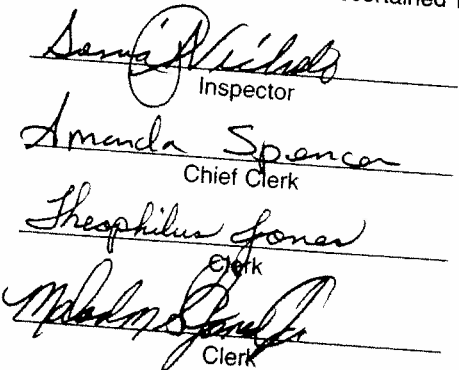 Sonia Nichols
Inspector
Amanda Spencer
Chief Clerk
Theophilus Jones
Clerk
Malcolm
Clerk